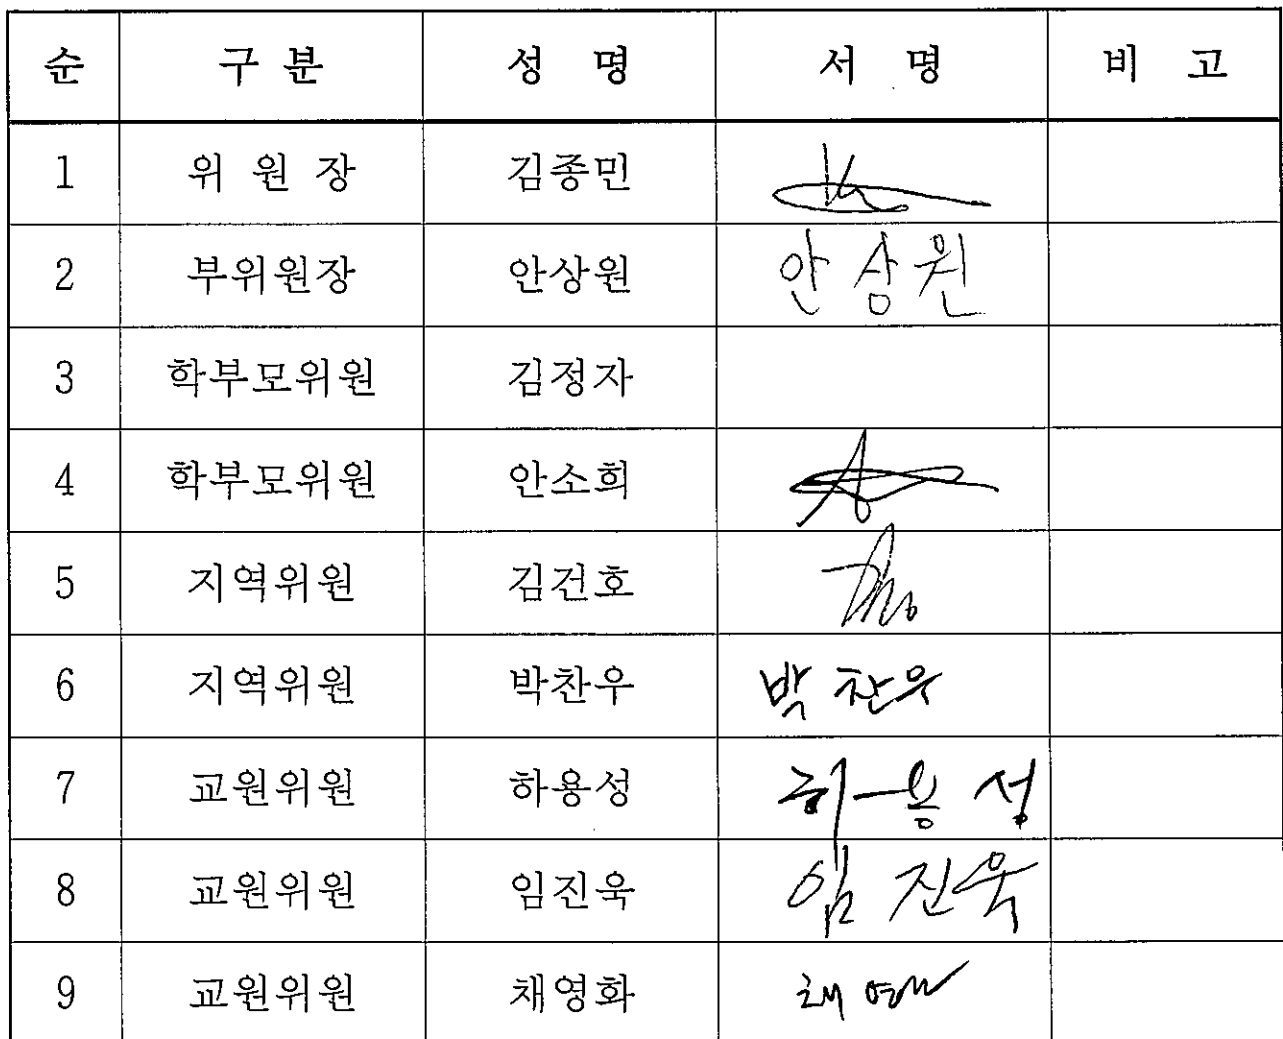 순 구 분 성 명 서 명 비 고
1 위 원 장 김종민
2 부위원장 안상원 안상원
3 학부모위원 김정자
4 학부모위원 안소희
5 지역위원 김건호
6 지역위원 박찬우 박찬우
7 교원위원 하용성 하용성
8 교원위원 임진욱 임진욱
9 교원위원 채영화